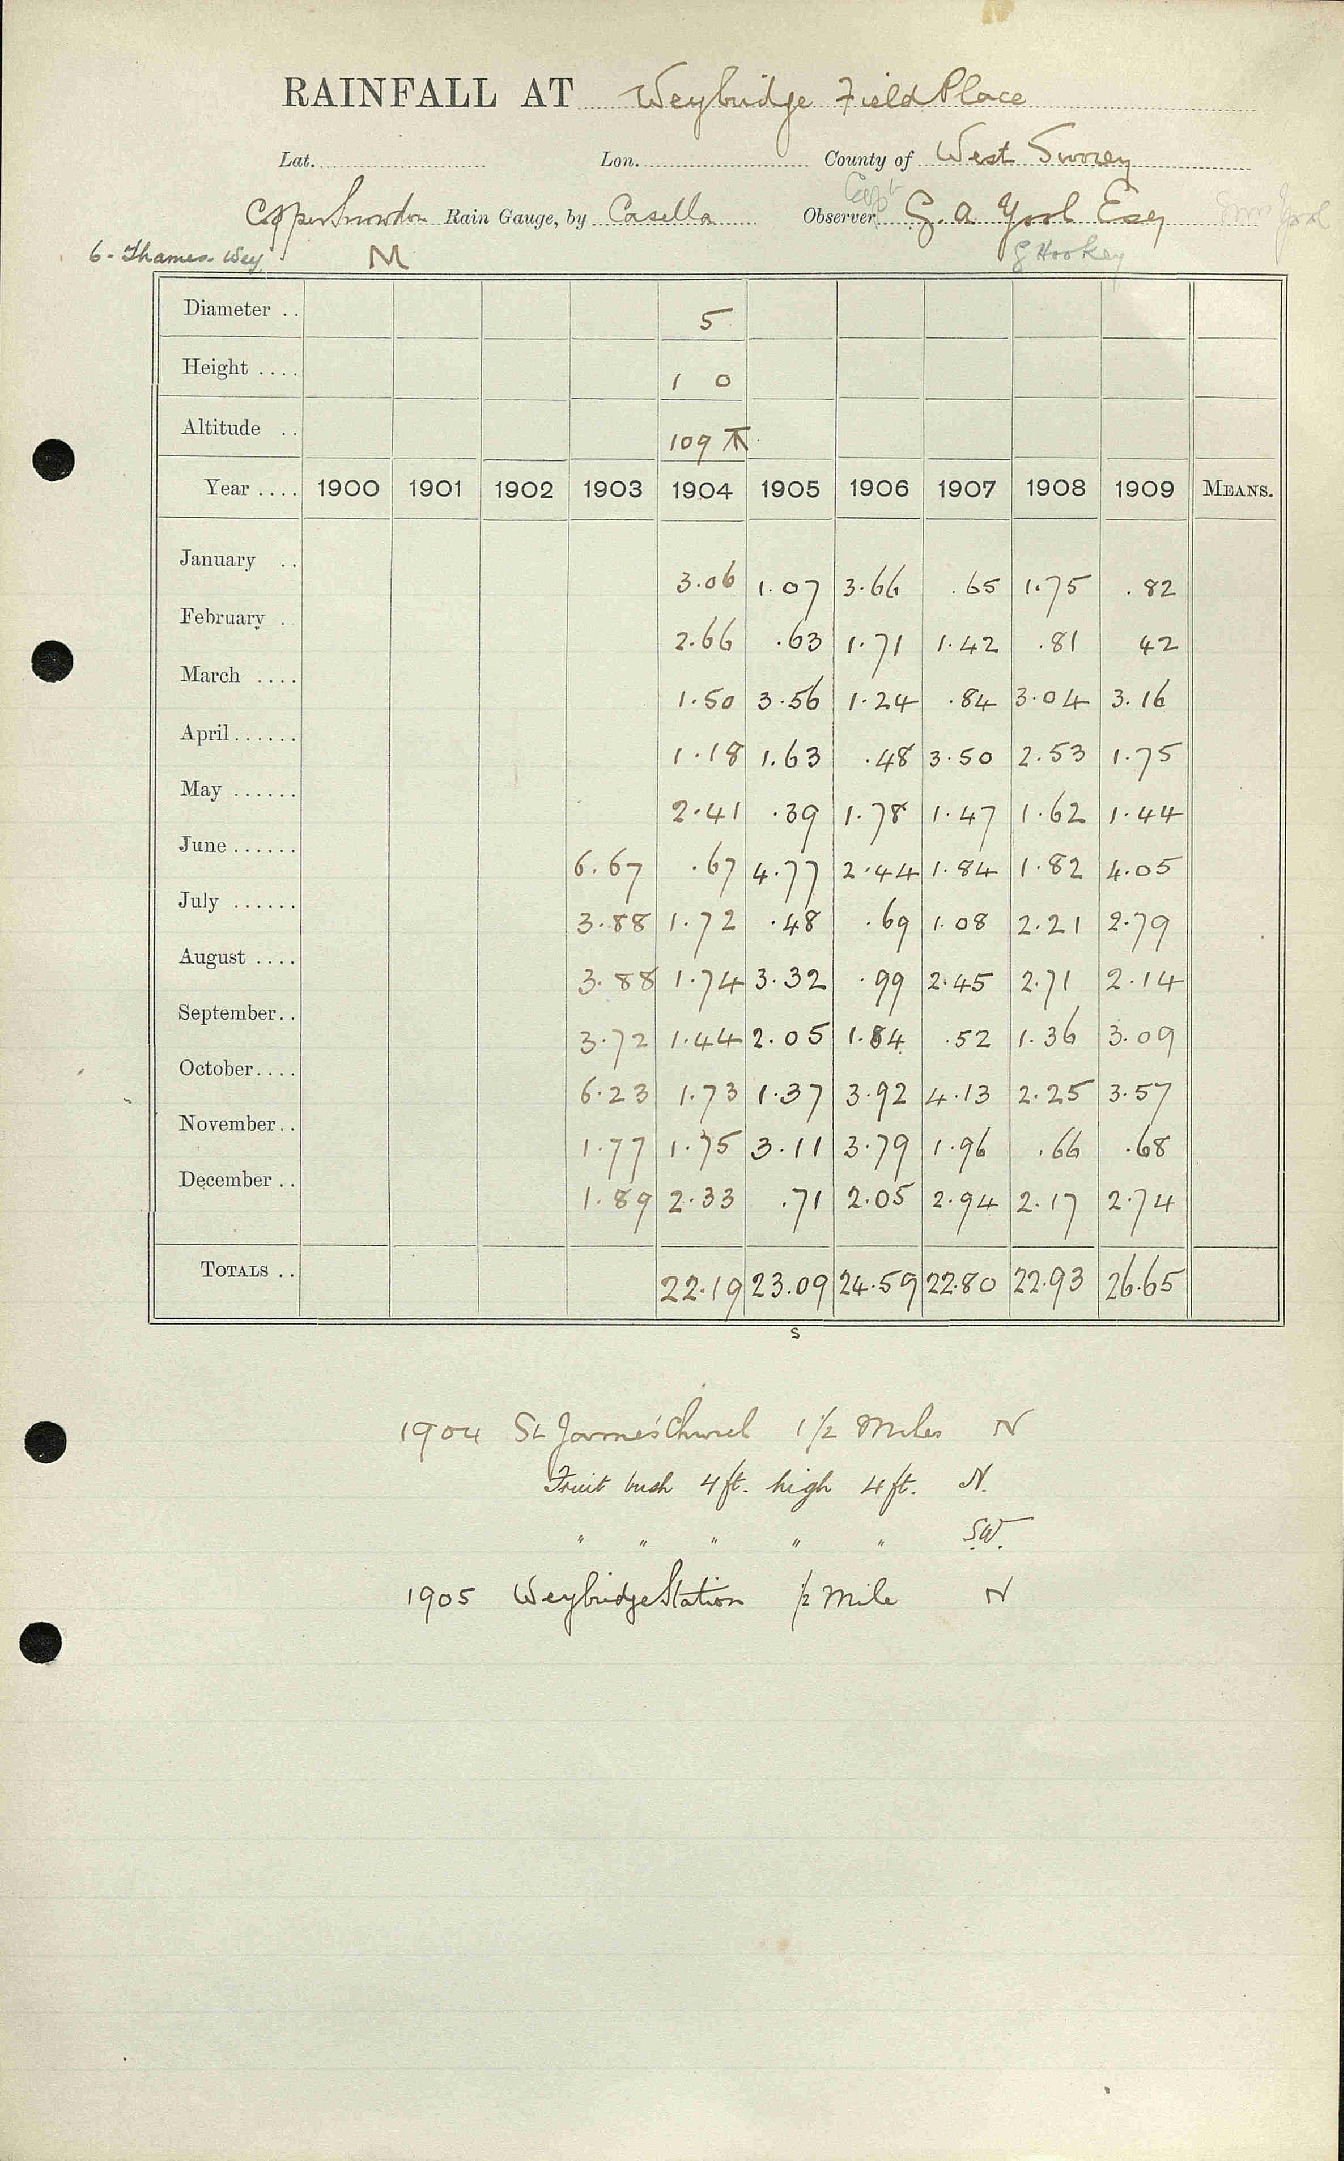 RAINFALL AT Weybridge Field Place
Lat. Lon. County of West Surrey
Capt
Copper Snowdon Rain Gauge, by Casella Observer G. A. Yool Esq Mrs Yool
6. Thames. Wey M G Hookey
Diameter .. 5
Height .... 1 0
Altitude .. 109
Year .... 1900 1901 1902 1903 1904 1905 1906 1907 1908 1909 MEANS.
January .. 3.06 1.07 3.66 .65 1.75 .82
February . 2.66 .63 1.71 1.42 .81 42
March .... 1.50 3.56 1.24 .84 3.04 3.16
April...... 1.18 1.63 .48 3.50 2.53 1.75
May ...... 2.41 .39 1.78 1.47 1.62 1.44
June...... 6.67 .67 4.77 2.44 1.84 1.82 4.05
July ...... 3.88 1.72 .48 .69 1.08 2.21 2.79
August .... 3.88 1.74 3.32 .99 2.45 2.71 2.14
September.. 3.72 1.44 2.05 1.84 .52 1.36 3.09
October.... 6.23 1.73 1.37 3.92 4.13 2.25 3.57
November.. 1.77 1.75 3.11 3.79 1.96 .66 .68
December .. 1.89 2.33 .71 2.05 2.94 2.17 2.74
TOTALS .. 22.19 23.09 24.59 22.80 22.93 26.65
s
1904 St James' Church 1 1/2 Miles N
Fruit bush 4 ft. high 4 ft. N.
" " " " " S.W.
1905 Weybridge Station 1/2 mile N